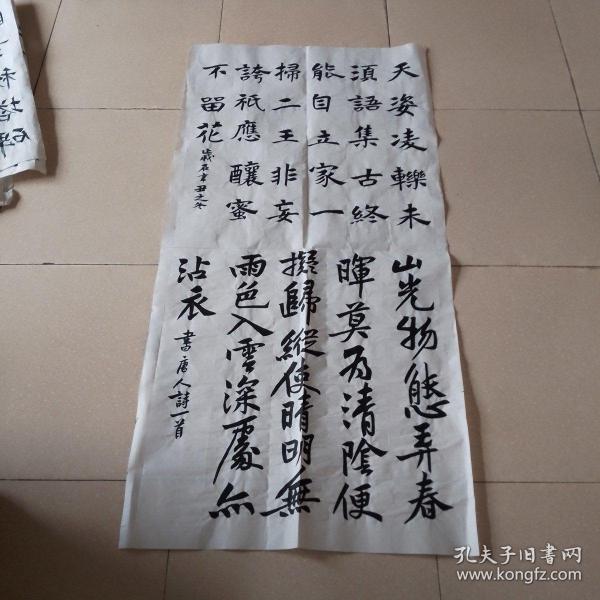 天姿凌轢未
須語集古終
能自立家一
掃二王非妄
誇祇應釀蜜
不留花
歲在辛丑之冬
山光物態弄春
暉莫為清陰便
擬歸縱使晴明無
雨色入雲深處亦
沾衣
書唐人詩一首
孔夫子旧书网
www.kongfz.com